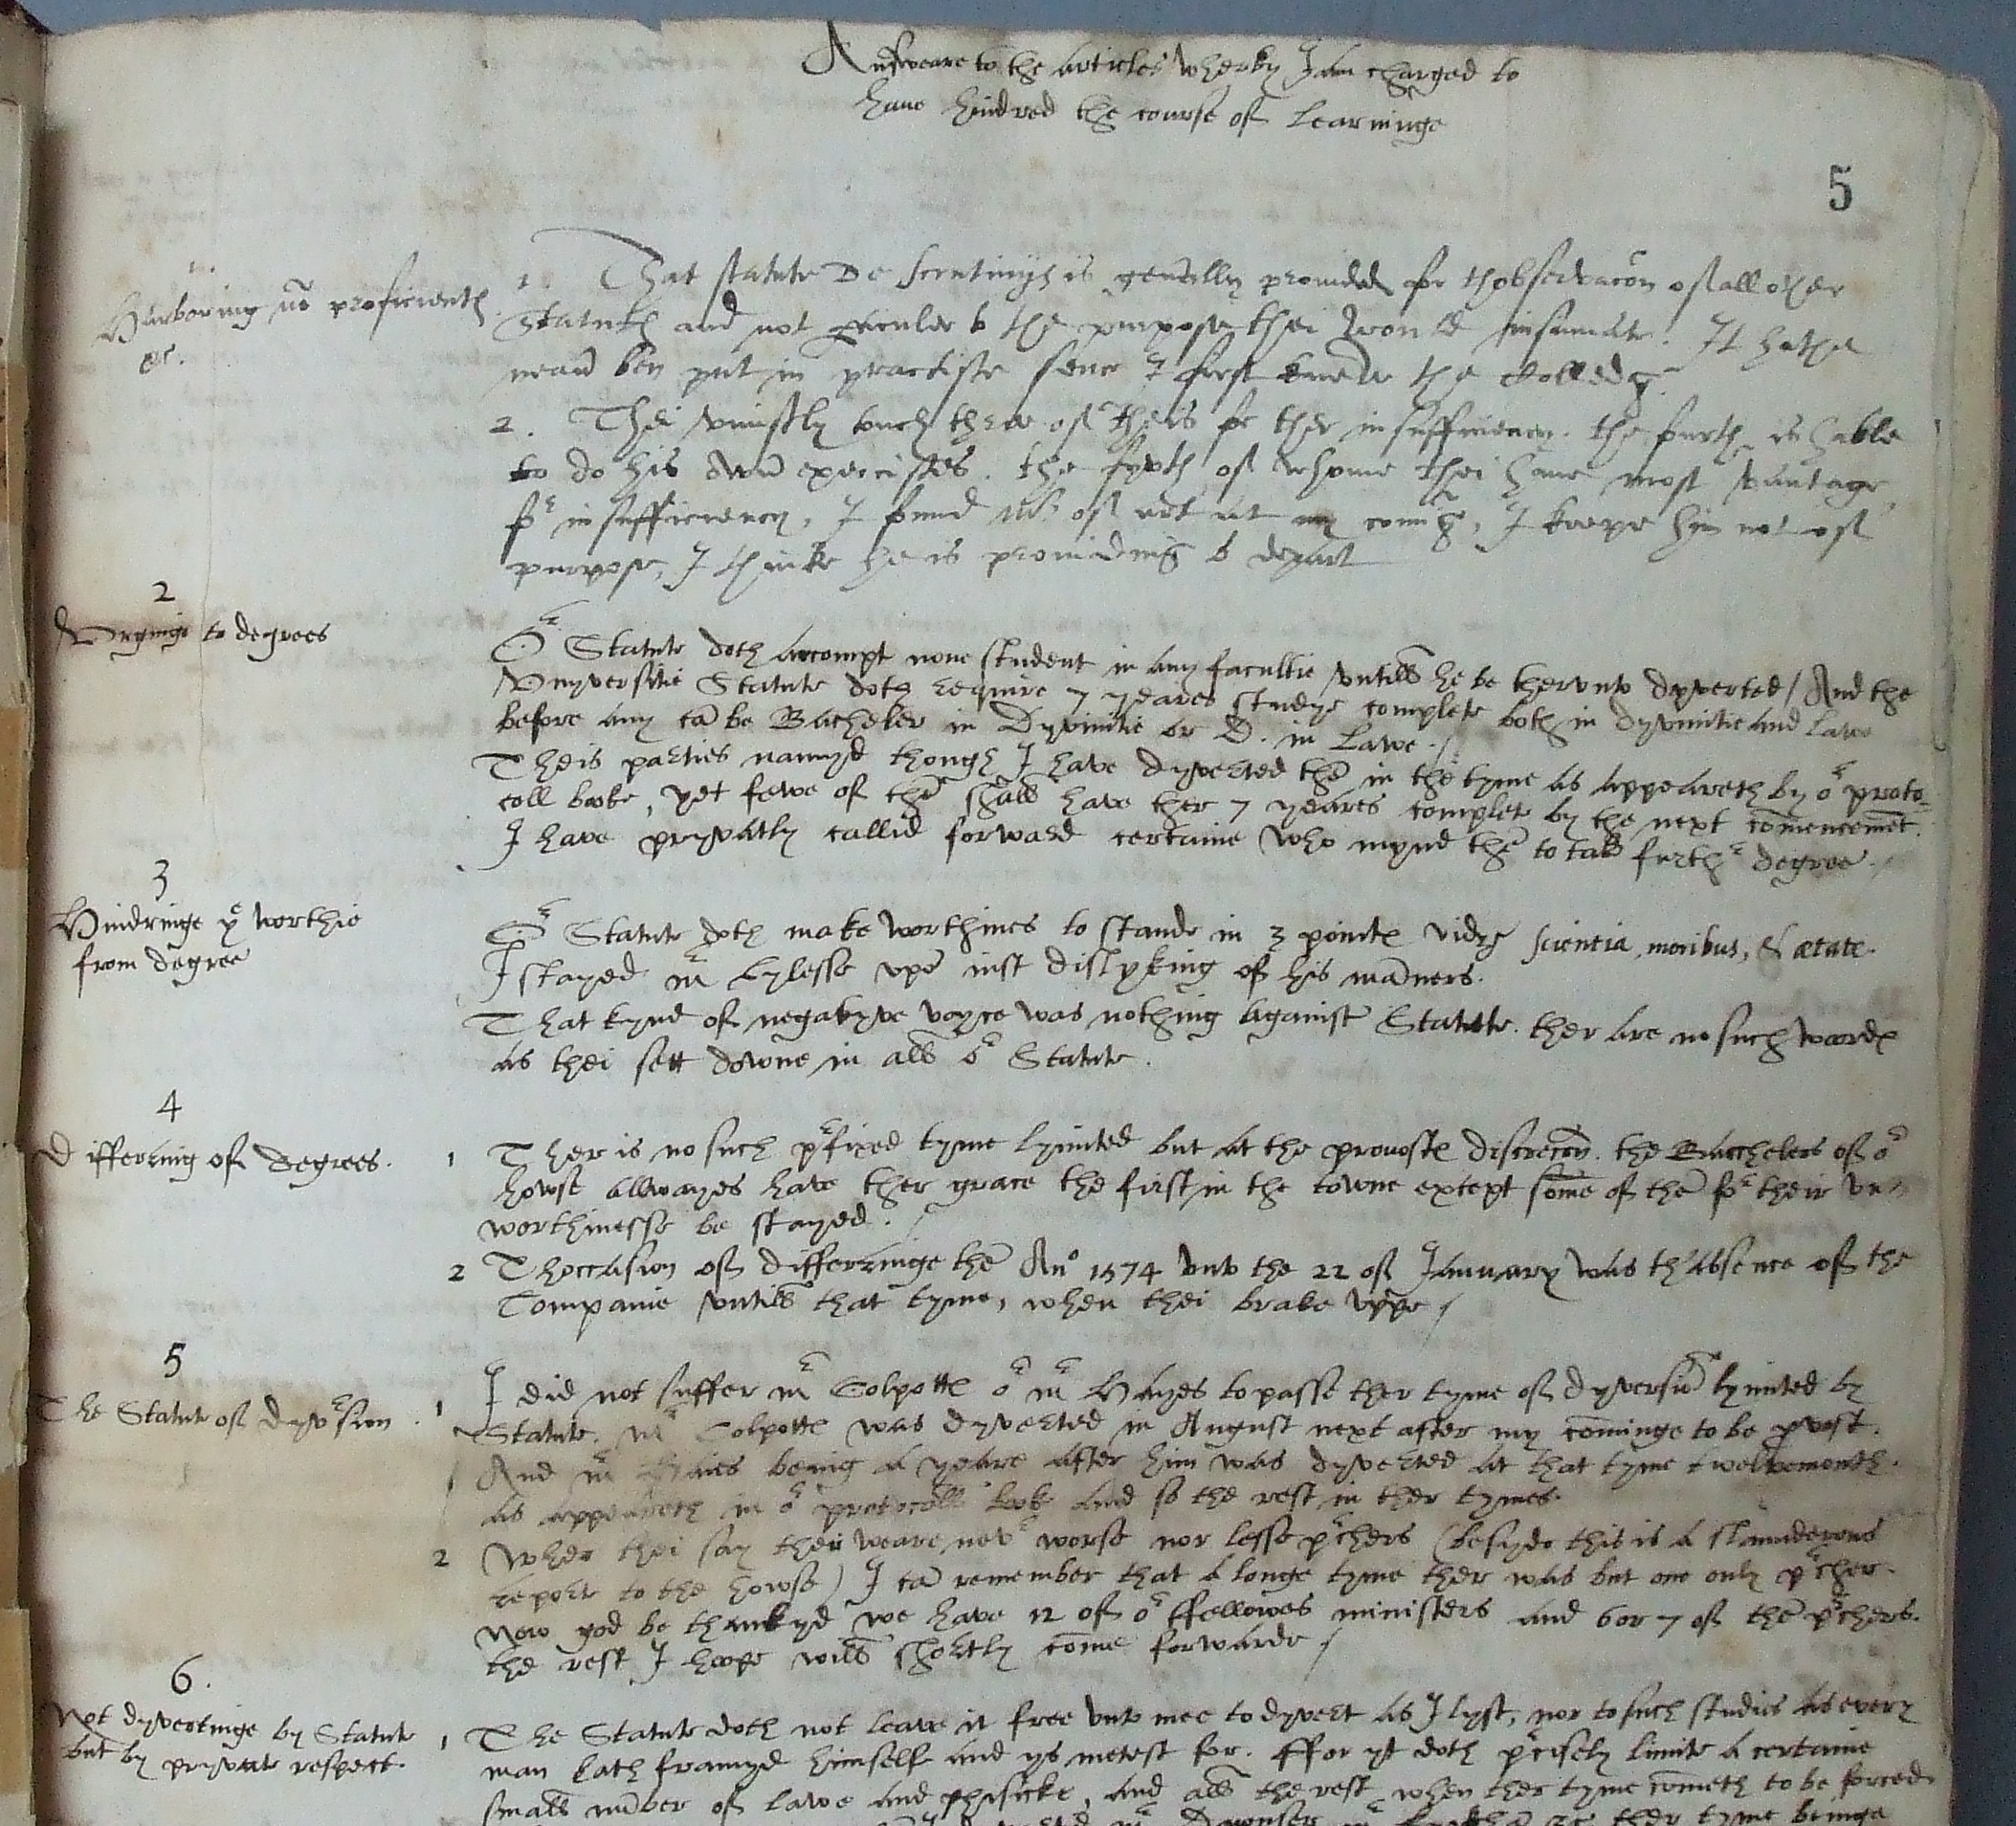 Answeare to the articles wherby I am charged to
have hindred the course of learninge
5
1.
Harboring no proficientes
etc.
1. That statute De scrutinijs is generally provided for thobservacon of all other
Statutes and not peculer to the purpose thei would insinuate. It hathe
never ben put in practise sence I first knewe the Colledg.
2. Thei uniustly touch three of theis for ther insufficiency. the fourth is hable
to do his own exercises. the fyvth of whome thei have most vantage
for insufficiency, I found Mr of art at my coming, I keepe him not of
purpose, I thinke he is providing to depart
2
Urginge to degrees
Or Statute doth accompt none student in any facultie untill he be therunto dyverted / And the
Unyversitie Statute doth require 7 yeares studye complete both in dyvinitie and lawe
before any can be Bacheler in Dyvinitie or D. in Lawe ./
Theis parties namyd though I have dyverted them in the tyme as appeareth by or proto=
coll booke, yet fewe of them shall have ther 7 yeares complete by the next comencemet.
I have pryvatly callid forward certaine who mynd them to take furthr degree ./
3
Hindringe ye worthie
from degree
Or Statute doth make worthines to stande in 3 pointes vidz scientia, moribus, & ætate.
I stayed mr Lylesse upon iust dislyking of his manners.
That kynd of negatyve voyce was nothing against Statute. ther are no such wordes
as thei sett downe in all or Statute.
4
Differring of degrees.
1 Ther is no such prfixed tyme lymited but at the provostes discrecon. the Bacchelers of or
howse allwayes have ther grace the first in the towne except some of them for their un=
worthinesse be stayed. /
2 Thoccasion of differringe them Ano 1574 unto the 22 of January was th'absence of the
Companie untill that tyme, when thei brake uppe /
5
The Statute of dyvrsion.
1 I did not suffer mr Colpotte or mr Hayes to passe ther tyme of dyversion lymited by
Statute. mr Colpotte was dyverted in August next after my cominge to be provost.
And mr Haies being a yeare after him was dyverted at that tyme twelvemonth.
as appeareth in or protocoll book and so the rest in ther tymes.
2 Wher thei say ther weare nevr worse nor lesse prchers (besyde this is a slaunderous
report to the howse) I can remember that a longe tyme ther was but one only prcher.
Now god be thankyd we have 12 of or ffellowes ministers and 6 or 7 of them prchers.
the rest I hope will shortly come forwarde /
6.
Not dyvertinge by Statute
but by pryvate respect.
1 The Statute doth not leave it free unto mee to dyvert as I lyst, nor to such studies as every
man hath framyd himself and ys metest for. ffor yt doth prcisely limite a certaine
small number of lawe and phisicke, and all the rest when ther tyme cometh to be forced
ther tyme beinge